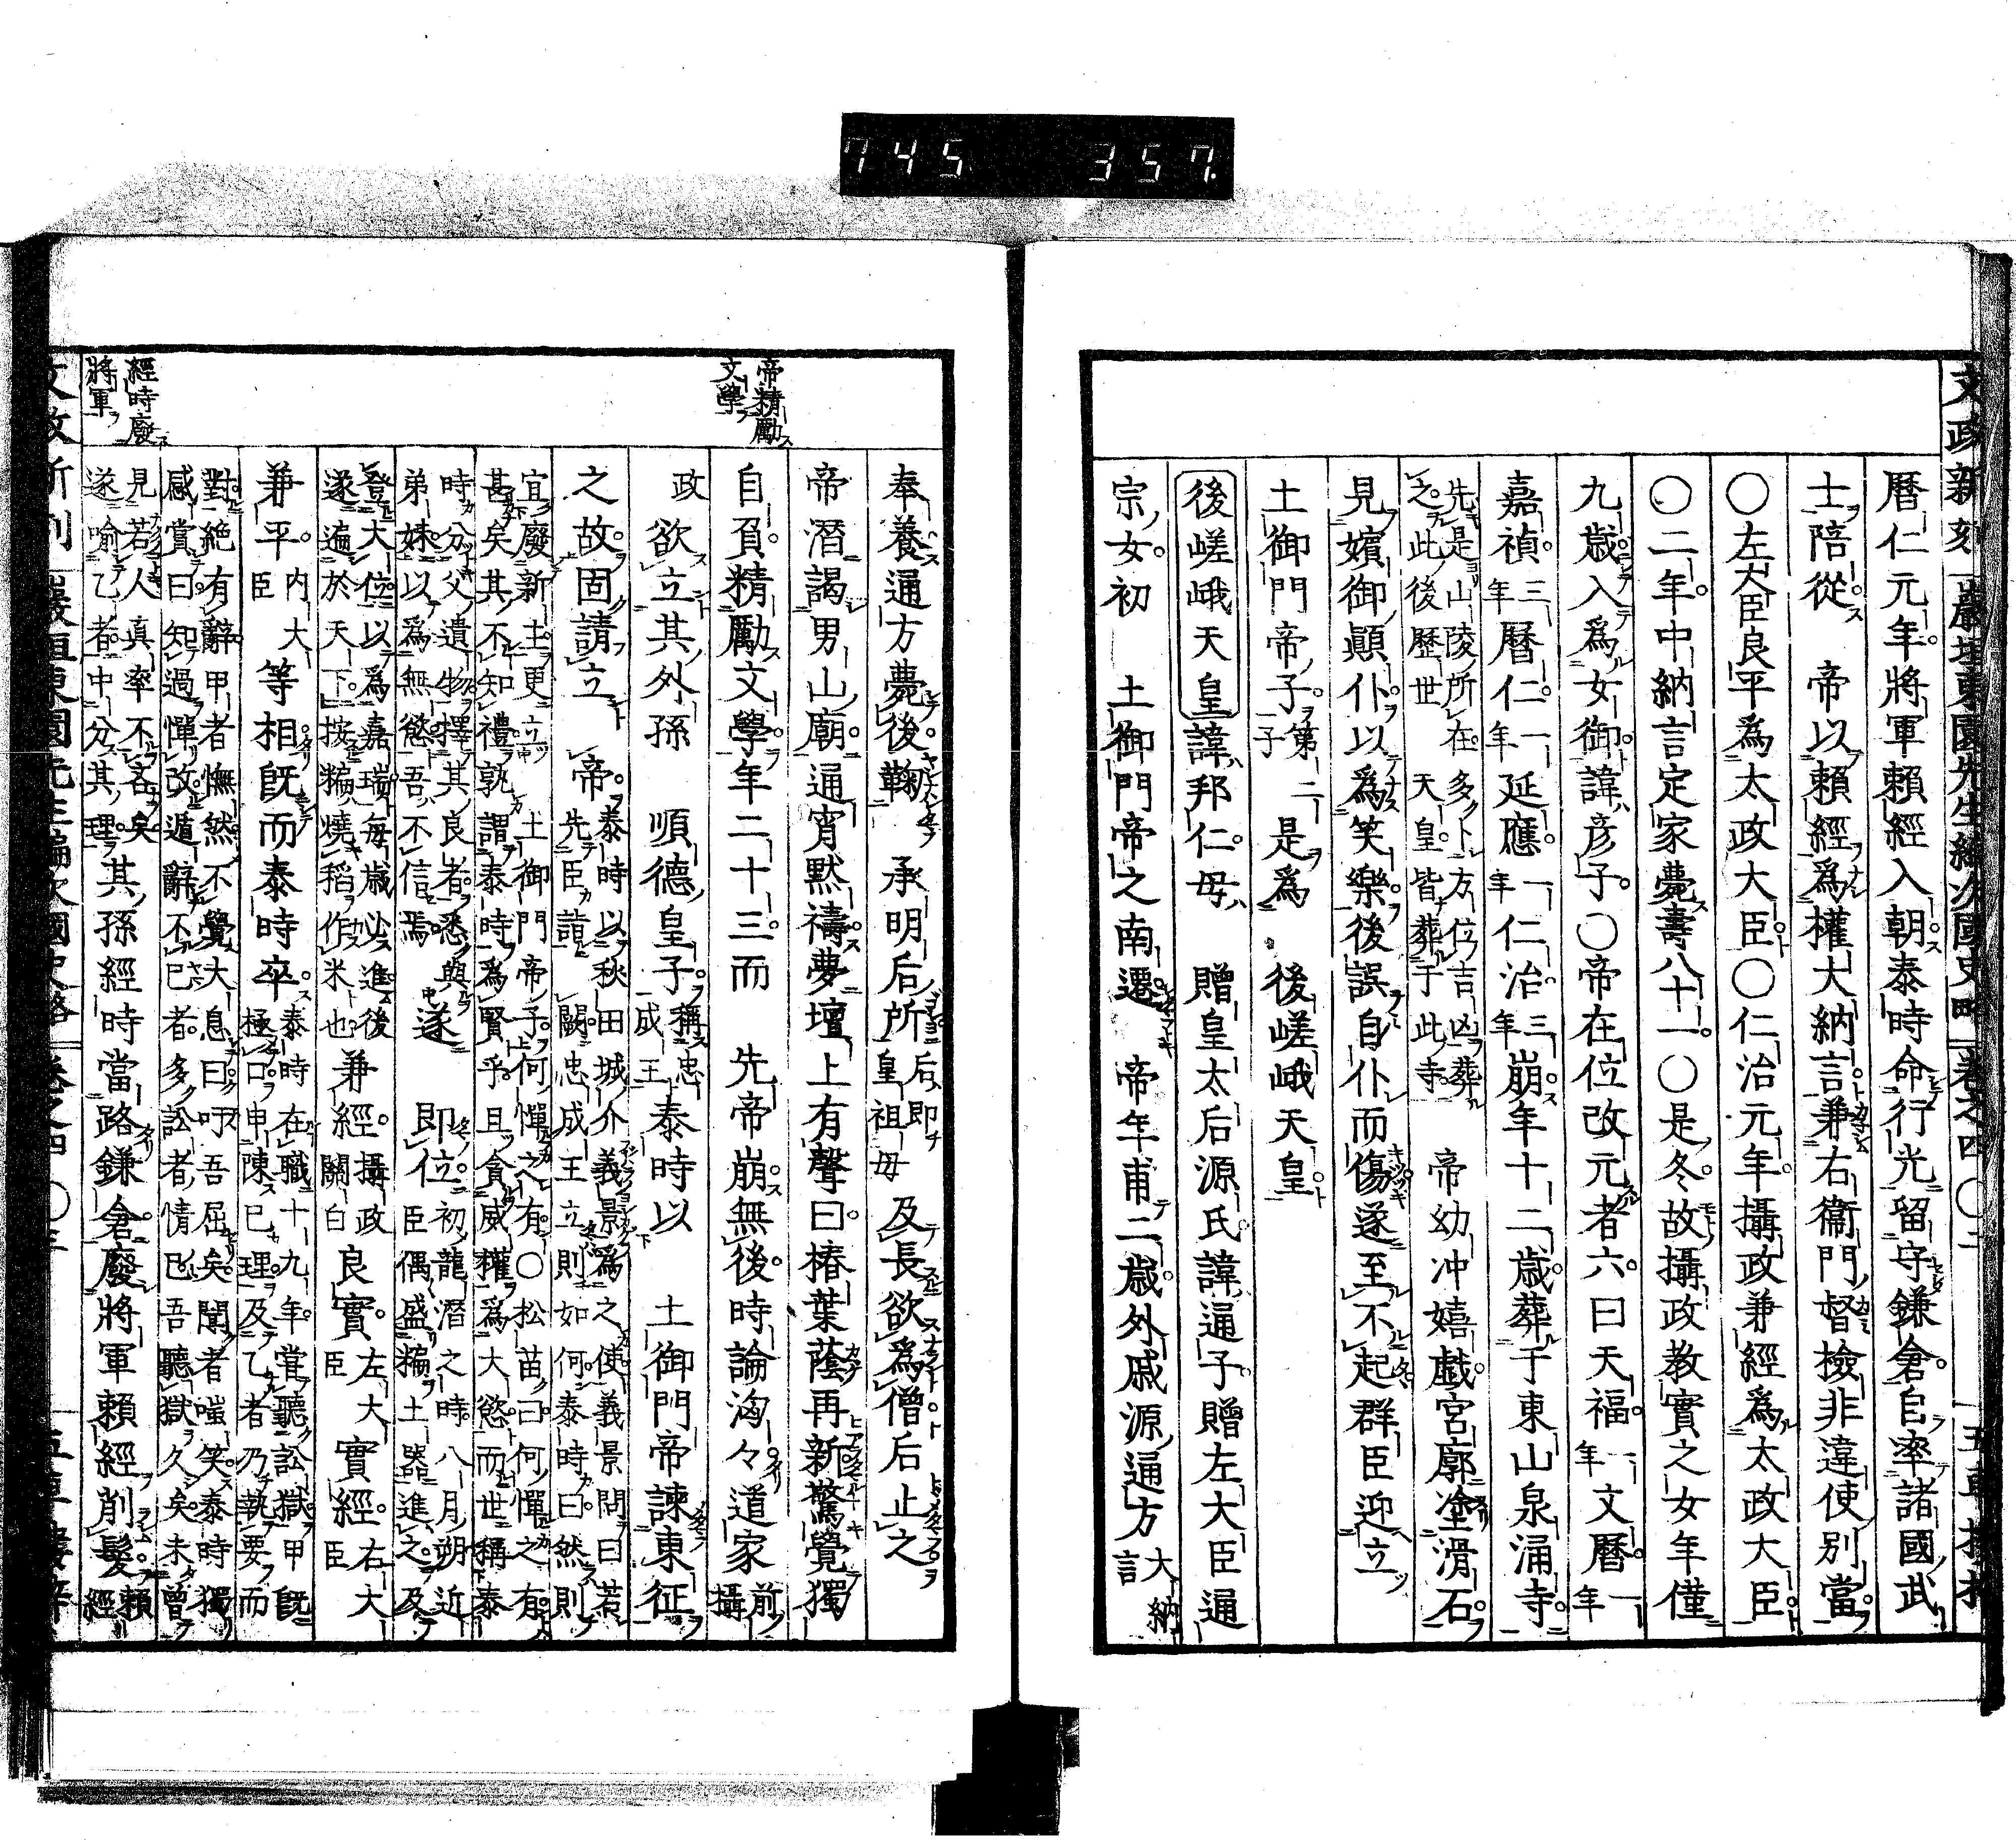 745 357.
文政新刻 巖垣東園先生編次國史略 卷之四 〇二 五車樓梓
曆仁元年將軍賴經入朝泰時命行光留守鎌倉自率諸國武
士陪從 帝以賴經爲權大納言兼右衞門督撿非違使別當
〇左大臣良平爲太政大臣〇仁治元年攝政兼經爲太政大臣
〇二年中納言定家薨壽八十一〇是冬故攝政教實之女年僅
九歲入爲女御諱彦子〇帝在位改元者六曰天福一年文曆一年
嘉禎三年曆仁一年延應一年仁治三年崩年十二歲葬于東山泉涌寺
先是山陵所在多卜方位吉凶葬
之此後歷世 天皇皆葬于此寺 帝幼冲嬉戲宮廓塗滑石
見嬪御顚仆以爲笑樂後誤自仆而傷遂至不起群臣迎立
土御門帝子第二子是爲 後嵯峨天皇
後嵯峨天皇諱邦仁母 贈皇太后源氏諱通子贈左大臣通
宗女初 土御門帝之南遷 帝年甫二歲外戚源通方大納言
奉養通方薨後鞠 承明后所后即皇祖母及長欲爲僧后止之
帝潛謁男山廟通宵默禱夢壇上有聲曰椿葉蔭再新驚覺獨
帝精勵
文學
自負精勵文學年二十三而 先帝崩無後時論洶々道家前攝
政欲立其外孫 順德皇子稱忠成王泰時以 土御門帝諫東征
之故固請立 帝泰時以秋田城介義景爲之使義景問曰若
先臣詣闕忠成王立則如何泰時曰然則
宜廢新主更立 土御門帝子何憚之有〇松苗曰何憚之有
甚矣其不知禮孰謂泰時爲賢乎且貪威權爲大慾而世稱泰
時分父遺物擇其良者悉與
弟妹以爲無慾吾不信焉 遂 即位初龍潛之時八月朔近
臣偶盛糄土器進之及
登大位以爲嘉瑞每歲必進後
遂遍於天下按糄燒稻作米也 兼經攝政關白良實左大臣實經右大臣
兼平內大臣等相旣而泰時卒泰時在職十九年嘗聽訟獄甲旣
極口申陳已理及乙者乃執要而
對絕有辭甲者憮然不覺大息曰吁吾屈矣聞者嗤笑泰時獨
感賞曰知過憚改遁辭不已者多訟者情已吾聽獄久矣未曾
經時廢
將軍
見若人真率不吝矣
遂喩乙者中分其理 其孫經時當路鎌倉廢將軍賴經削髮賴經
文政新刻 巖垣東園先生編次國史略 卷之四 〇三 五車樓梓